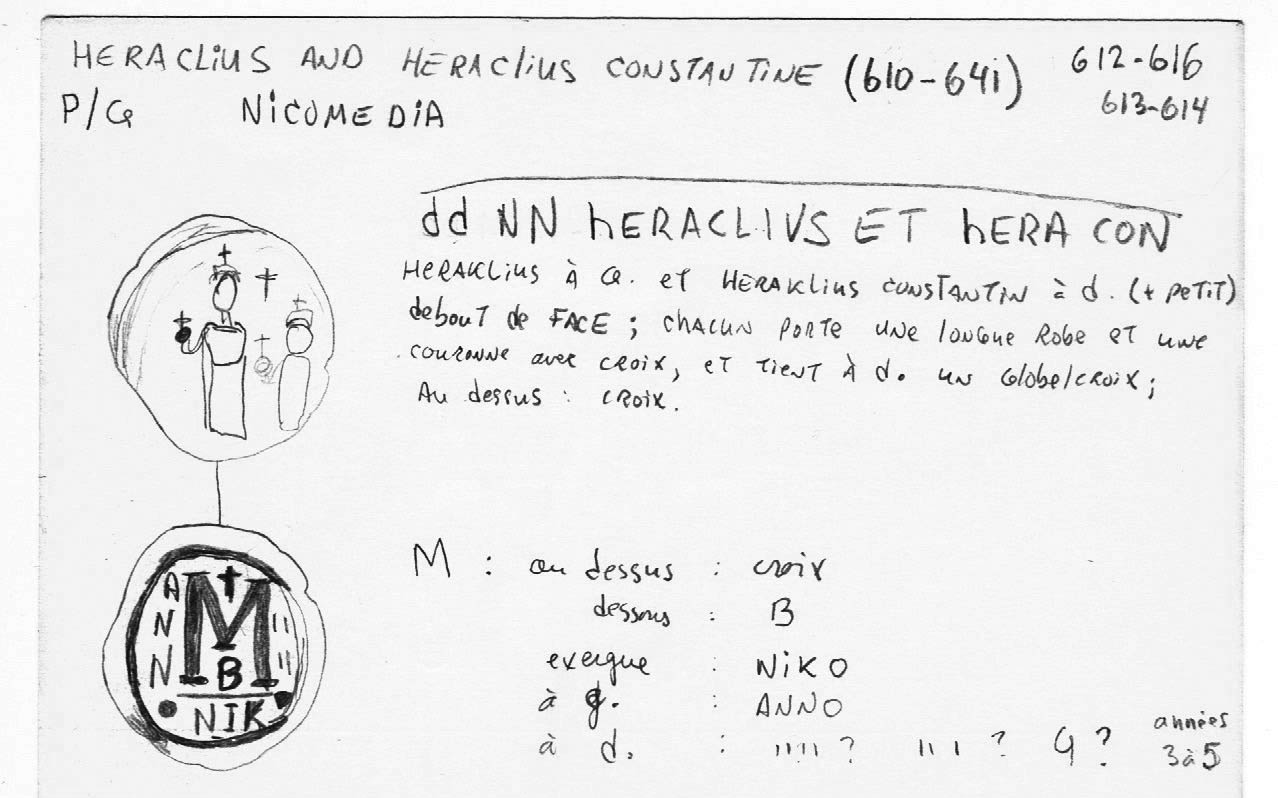 HERACLIUS AND HERACLIUS CONSTANTINE (610-641) 612-616
613-614
P/G NICOMEDIA
dd NN hERACLIVS ET hERA CON
HERAKLIUS À G. et HERAKLIUS CONSTANTIN à d. (+ PETIT)
debout de FACE ; chacun porte une longue Robe et une
couronne avec croix, et tient à d. un Globe/croix ;
Au dessus : croix.
M : au dessus : croix
dessous : B
exergue : NIKO
à g. : ANNO
à d. : ıııı ? ııı ? G ? années
3 à 5
A
N
N
M
B
NIK